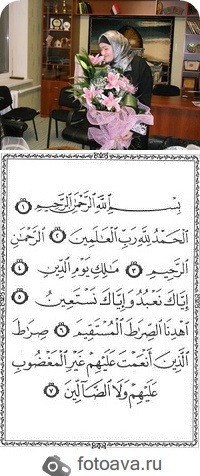 بِسْمِ اللَّهِ الرَّحْمَٰنِ الرَّحِيمِ ١
الْحَمْدُ لِلَّهِ رَبِّ الْعَالَمِينَ ٢ الرَّحْمَٰنِ
الرَّحِيمِ ٣ مَالِكِ يَوْمِ الدِّينِ ٤
إِيَّاكَ نَعْبُدُ وَإِيَّاكَ نَسْتَعِينُ ٥
اهْدِنَا الصِّرَاطَ الْمُسْتَقِيمَ ٦ صِرَاطَ
الَّذِينَ أَنْعَمْتَ عَلَيْهِمْ غَيْرِ الْمَغْضُوبِ
عَلَيْهِمْ وَلَا الضَّالِّينَ ٧
fotoava.ru